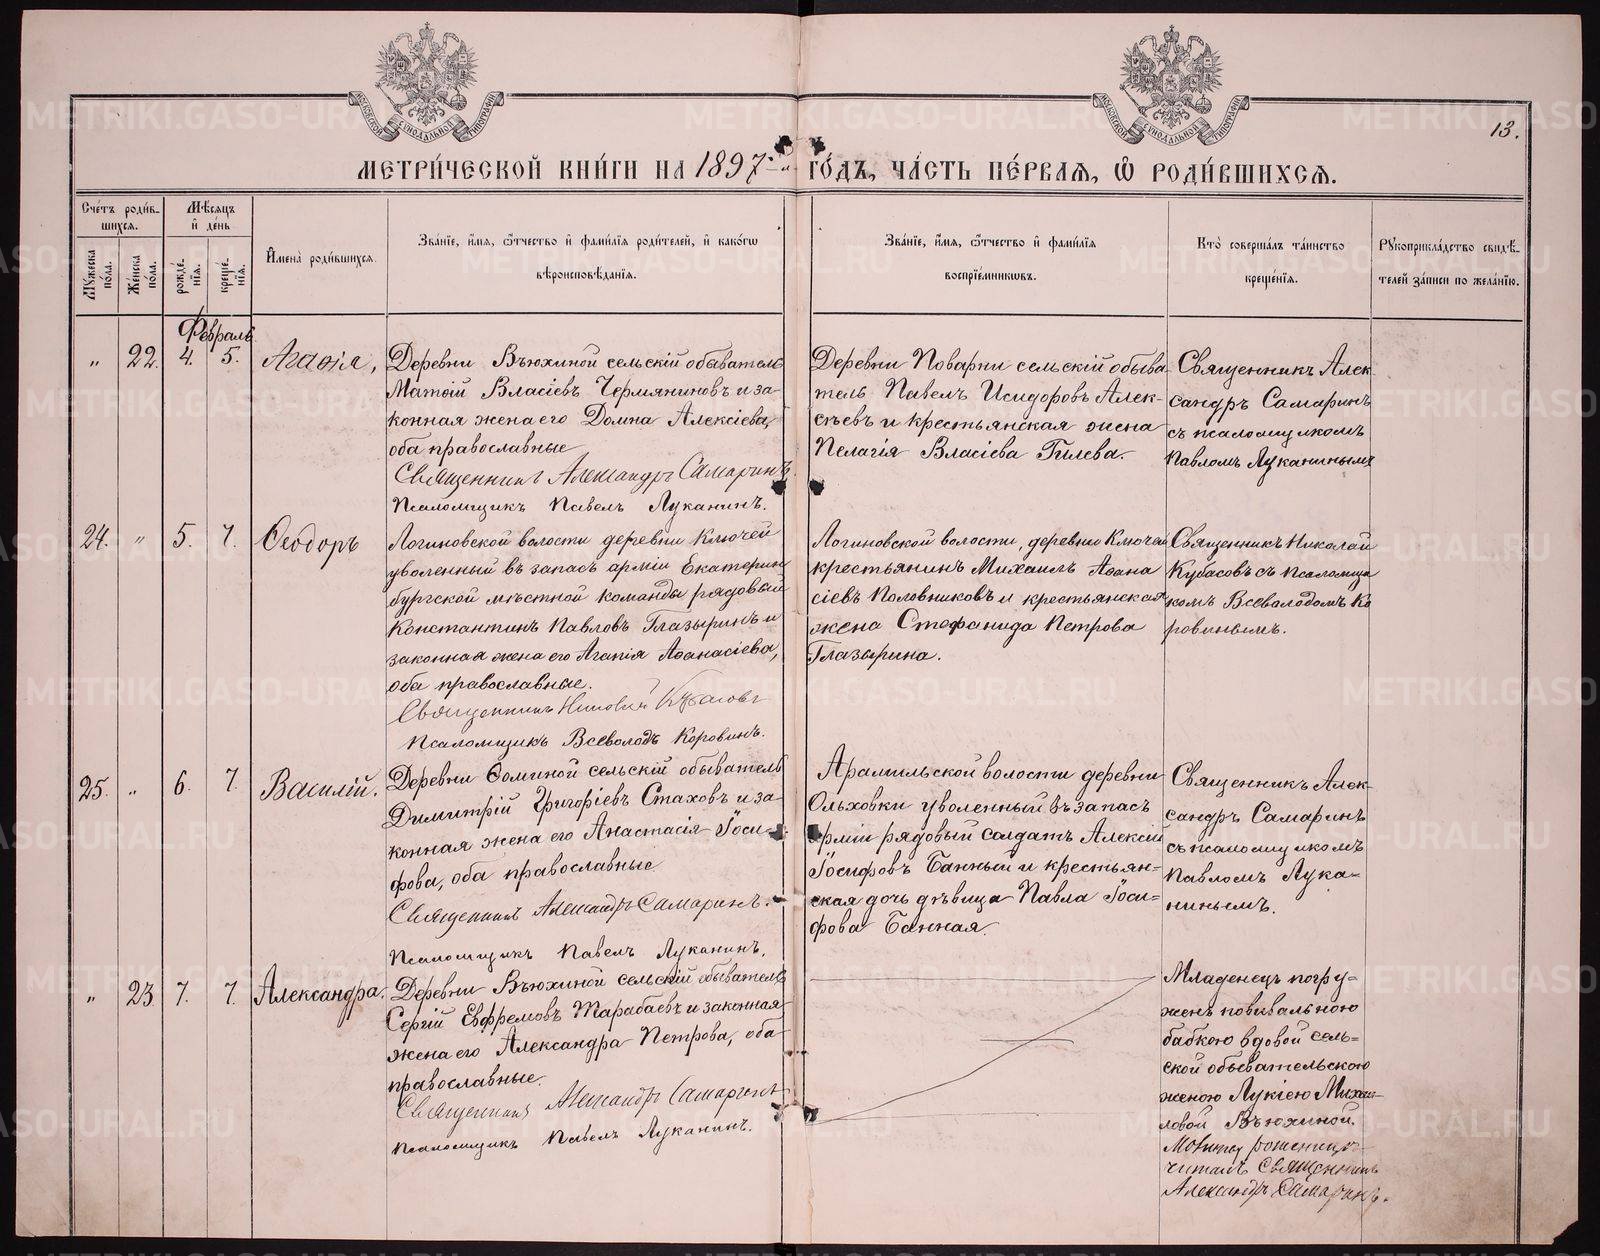 МОСКОВСКОЙ СѴНОДАЛЬНОЙ ТИПОГРАФІИ
МОСКОВСКОЙ СѴНОДАЛЬНОЙ ТИПОГРАФІИ
13.
МЕТРИ́ЧЕСКОЙ КНИ́ГИ НА 1897 ГО́ДЪ, ЧА́СТЬ ПЕ́РВАЯ, Ѽ РОДИ́ВШИХСЯ.
Сче́тъ роди́в-
шихся.
Мꙋжеска по́ла.
Же́нска по́ла.
Мѣ́сяцъ
и҆ де́нь
рожде́-
нїя.
креще́-
нїя.
И҆мена̀ роди́вшихся.
Зва́нїе, и҆́мя, ѻ҆́тчество и҆ фами́лїя роди́телей, и҆ како́гѡ
вѣроисповѣ́данїя.
Зва́нїе, и҆́мя, ѻ҆́тчество и҆ фами́лїя
воспрїе́мникѡвъ.
Кто̀ соверша́лъ та́инство
креще́нїя.
Рꙋкоприкла́дство свидѣ́-
телей за́писи по жела́нїю.
Февраль
" 22. 4. 5. Агаѳія,
Деревни Вьюхиной сельскій обыватель
Матѳій Власіевъ Чермяниновъ и за-
конная жена его Домна Алексіева,
оба православные
Священникъ Александръ Самаринъ
Псаломщикъ Павелъ Луканинъ.
Деревни Поварни сельскій обыва
тель Павелъ Исидоровъ Алек-
сѣевъ и крестьянская жена
Пелагія Власіева Гилева.
Священникъ Алек
сандръ Самаринъ
съ псаломщикомъ
Павломъ Луканинымъ
24. " 5. 7. Ѳеодоръ
Логиновской волости деревни Ключей
уволенный въ запасъ арміи Екатерин
бургской мѣстной команды рядовый
Константинъ Павловъ Глазыринъ и
законная жена его Агапія Аѳанасіева,
оба православные.
Священникъ Николай Кубасовъ
Псаломщикъ Всеволодъ Коровинъ.
Логиновской волости, деревни Ключей
крестьянинъ Михаилъ Аѳана
сіевъ Половниковъ и крестьянская
жена Стефанида Петрова
Глазырина.
Священникъ Николай
Кубасовъ съ псаломщи
комъ Всеволодомъ Ко
ровинымъ.
25. " 6. 7. Василій.
Деревни Ѳоминой сельскій обыватель
Димитрій Григоріевъ Стаховъ и за-
конная жена его Анастасія Іоси-
фова, оба православные
Священникъ Александръ Самаринъ.
Псаломщикъ Павелъ Луканинъ.
Арамильской волости деревни
Ольховки уволенный въ запасъ
арміи рядовый солдатъ Алексій
Іосифовъ Банный и крестьян-
ская дочь дѣвица Павла Іоси-
фова Банная.
Священникъ Алек-
сандръ Самаринъ
съ псаломщикомъ
Павломъ Лука-
нинымъ.
" 23 7. 7. Александра.
Деревни Вьюхиной сельскій обыватель
Сергій Евфремовъ Тарабаевъ и законная
жена его Александра Петрова, оба
православные.
Священникъ Александръ Самаринъ
Псаломщикъ Павелъ Луканинъ.
Младенецъ погру-
женъ повивальною
бабкою вдовой сель-
ской обывательскою
женою Лукіею Михаи-
ловой Вьюхиной.
Молитву роженицѣ
читалъ Священникъ
Александръ Самаринъ.
METRIKI.GASO-URAL.RU